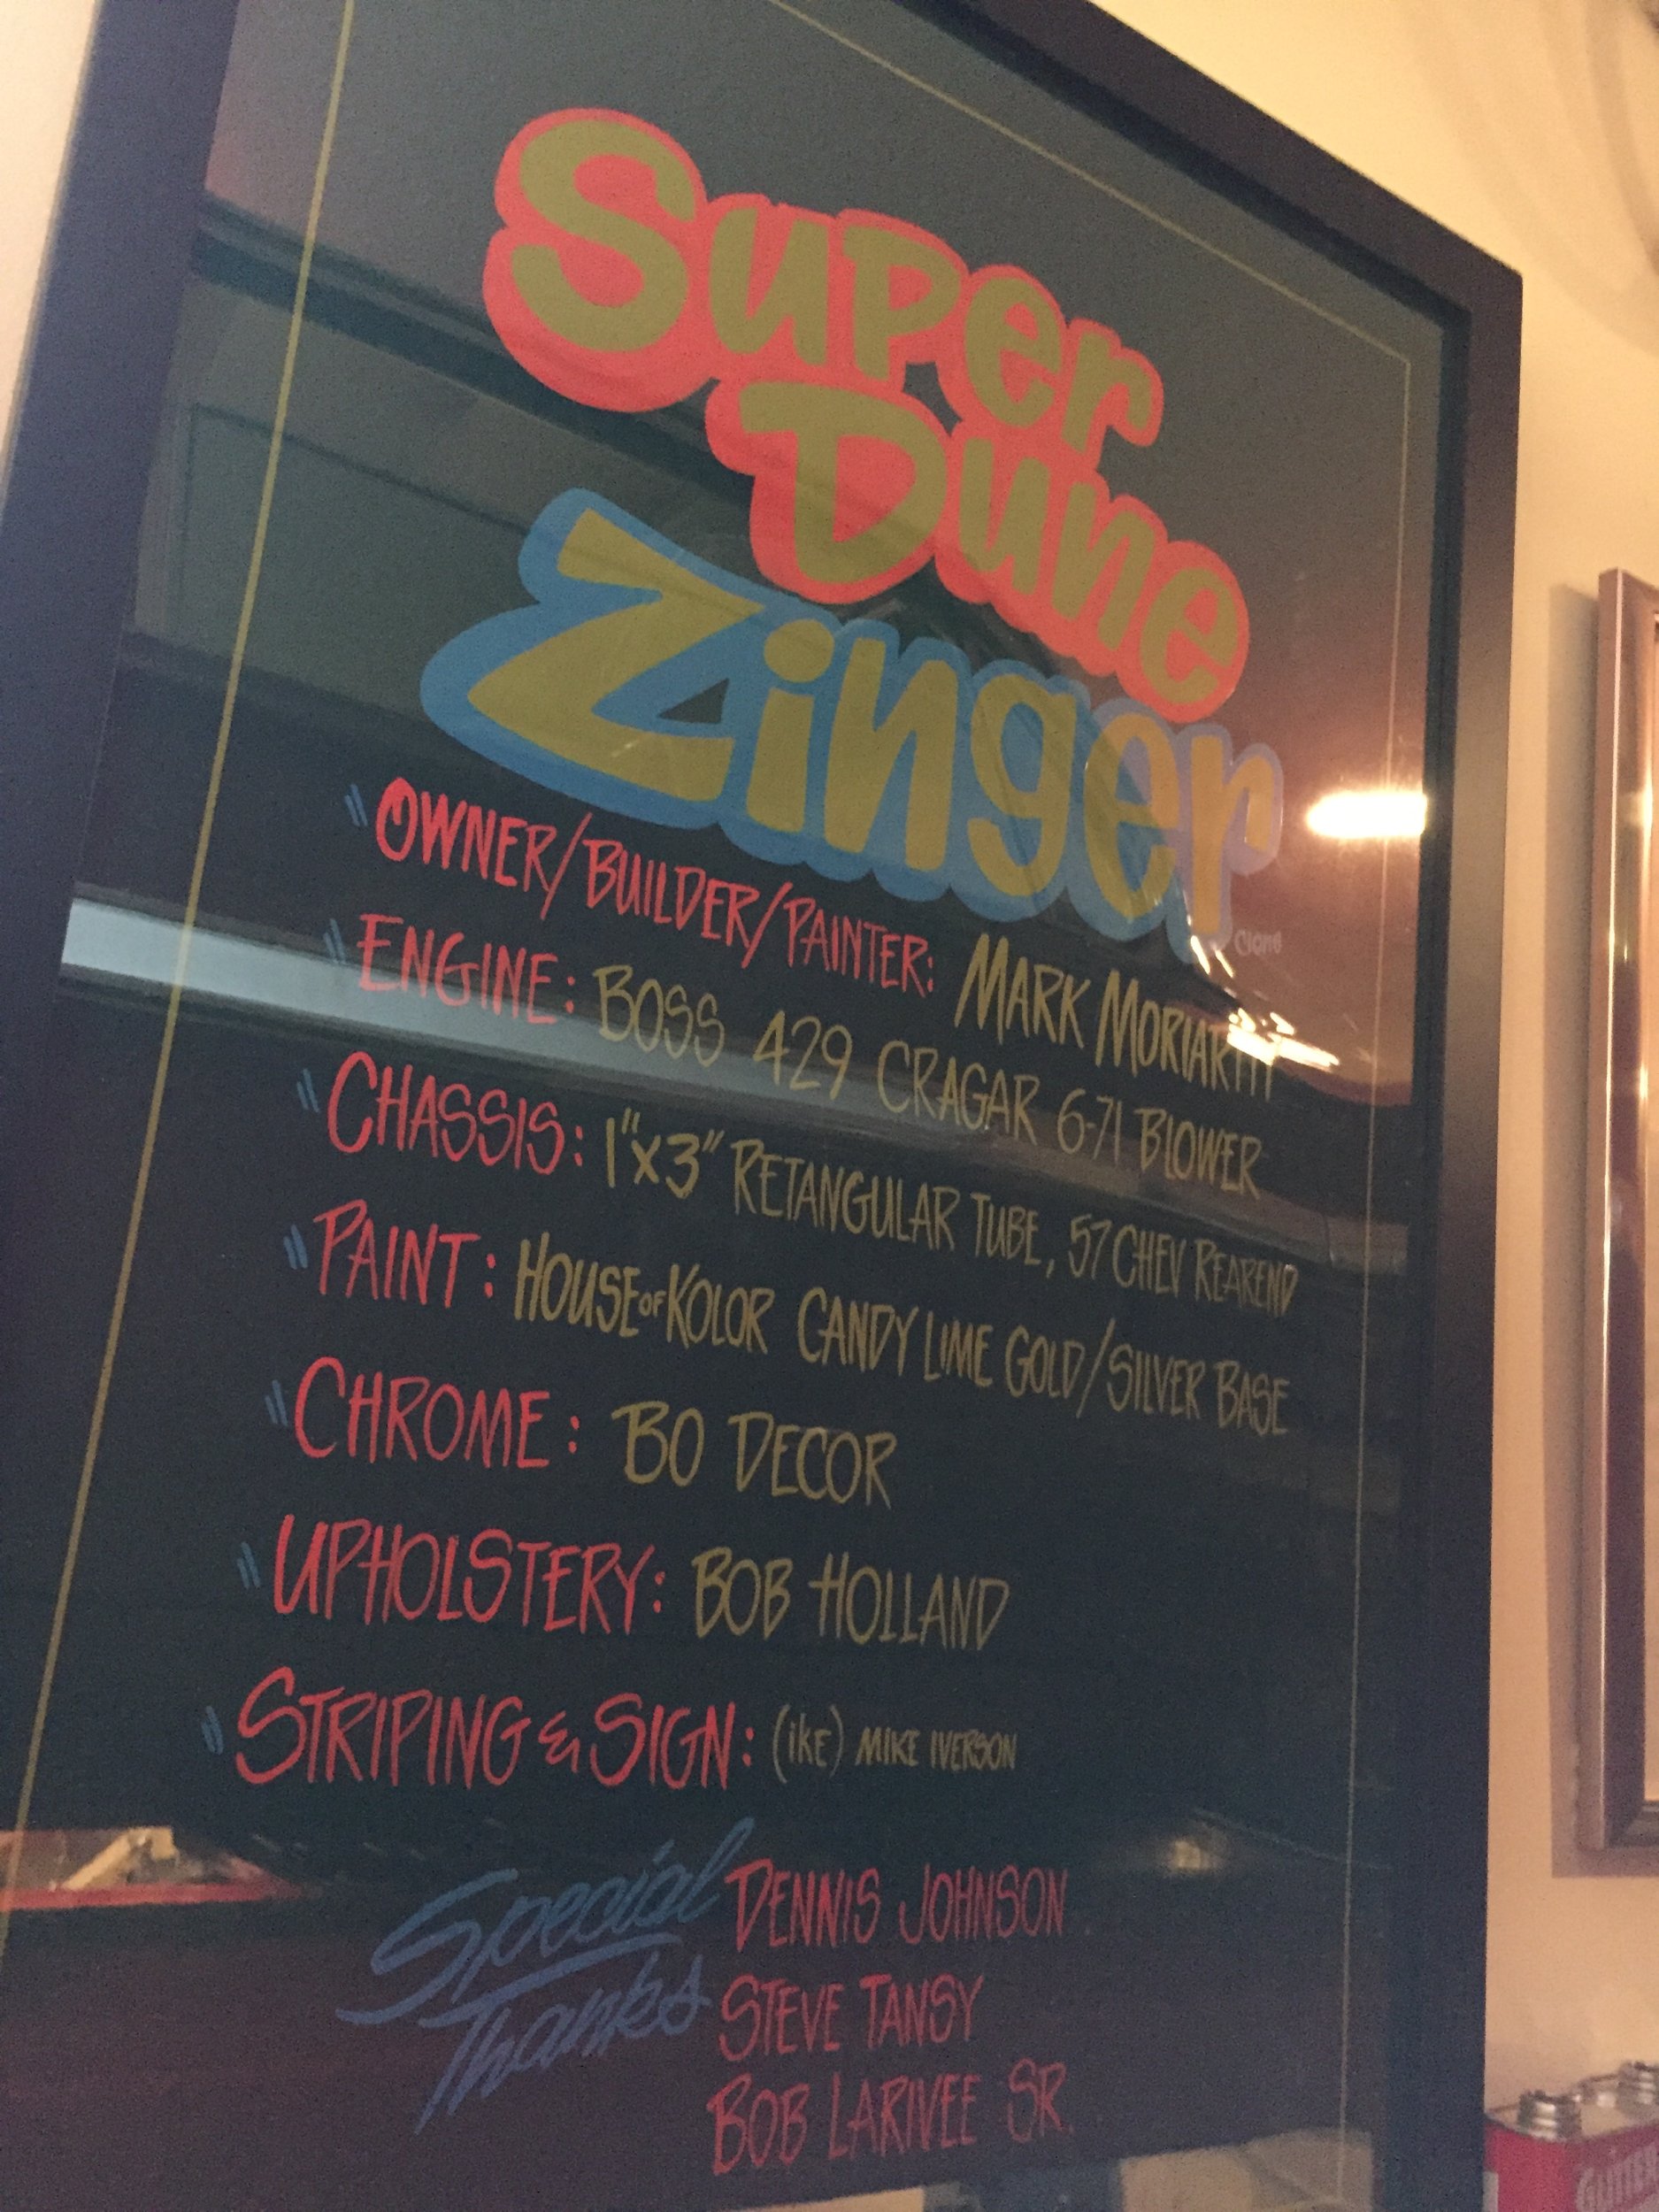 Super
Dune
Zinger
OWNER/BUILDER/PAINTER: MARK MORIARTY
ENGINE: BOSS 429 CRAGAR 6-71 BLOWER
CHASSIS: 1"x3" RETANGULAR TUBE, 57 CHEV REAREND
PAINT: HOUSE OF KOLOR CANDY LIME GOLD/SILVER BASE
CHROME: BO DECOR
UPHOLSTERY: BOB HOLLAND
STRIPING & SIGN: (IKE) MIKE IVERSON
Special Thanks
DENNIS JOHNSON
STEVE TANSY
BOB LARIVEE SR.